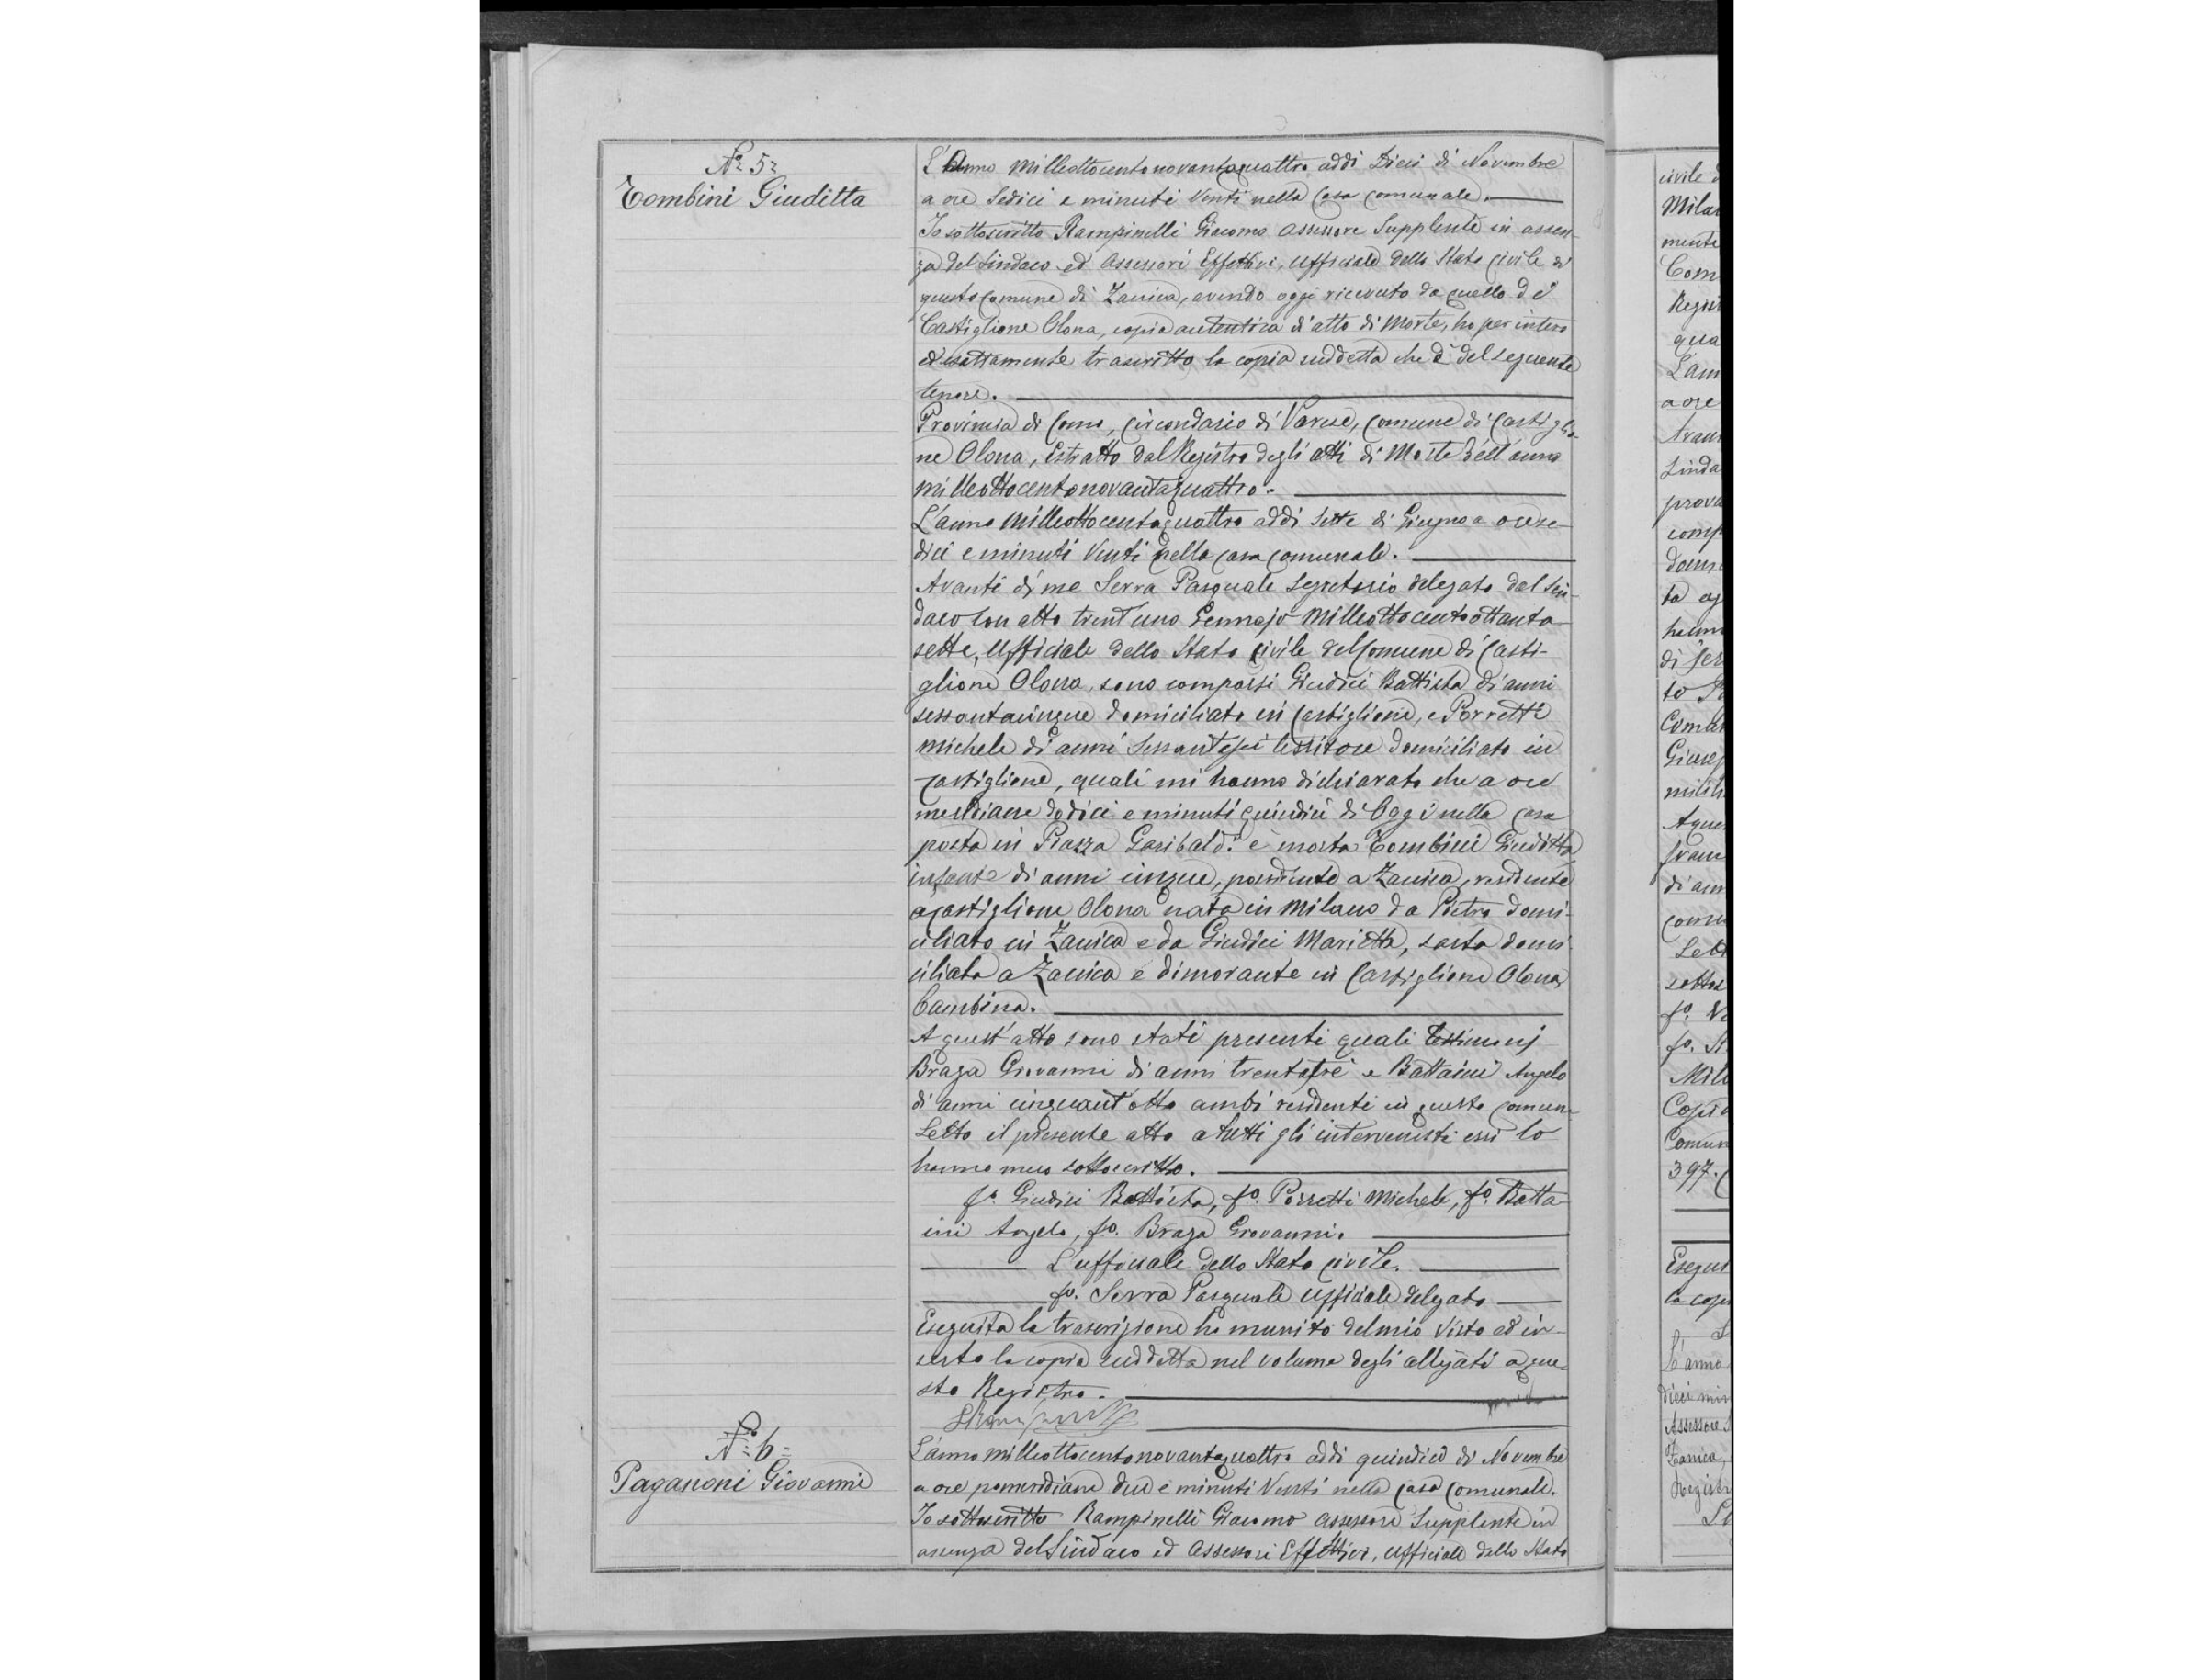 N.º 5.
Tombini Giuditta
L'Anno Milleottocentonovantaquattro addì Dieci di Novembre
a ore Sedici e minuti Venti nella Casa comunale.
Io sottoscritto Rampinelli Giacomo Assessore Supplente in assen-
za del Sindaco ed Assessori Effettivi, Ufficiale dello Stato Civile di
questo Comune di Zanica, avendo oggi ricevuto da quello di
Castiglione Olona, copia autentica d'atto di Morte, ho per intero
ed esattamente trascritto la copia suddetta che è del seguente
tenore.
Provincia di Como, Circondario di Varese, Comune di Castiglio-
ne Olona, Estratto dal Registro degli atti di Morte dell'anno
milleottocentonovantaquattro.
L'anno Milleottocentoquattro addì Sette di Giugno a ore se-
dici e minuti Venti nella casa comunale.
Avanti di me Serra Pasquale Segretario delegato dal Sin-
daco con atto trent'uno Gennajo Milleottocentoottanta
sette, Ufficiale dello Stato Civile del Comune di Casti-
glione Olona, sono comparsi Giudici Battista di anni
sessantacinque domiciliato in Castiglione, e Porretti
Michele di anni Sessantasei tessitore domiciliato in
Castiglione, quali mi hanno dichiarato che a ore
meridiane dodici e minuti quindici di Oggi nella casa
posta in Piazza Garibaldi è morta Tombini Giuditta
infante di anni cinque, possidente a Zanica, residente
a Castiglione Olona nata in Milano da Pietro domi-
ciliato in Zanica e da Giudici Marietta, sarta domi
ciliata a Zanica e dimorante in Castiglione Olona
bambina.
A quest'atto sono stati presenti quali Testimonj
Braga Giovanni di anni trentatre e Battaini Angelo
di anni cinquant'otto ambi residenti in questo comune
Letto il presente atto a tutti gli intervenuti essi lo
hanno meco sottoscritto.
f.º Giudici Battista, f.º Porretti Michele, f.º Batta-
ini Angelo, f.º Braga Giovanni.
L'ufficiale dello Stato civile.
f.º Serra Pasquale Ufficiale delegato
Eseguita la trascrizione ho munito del mio Visto ed in-
serto la copia suddetta nel volume degli allegati a que-
sto Registro.
N.º 6.
Paganoni Giovanni
L'anno milleottocentonovantaquattro addì quindici di Novembre
a ore pomeridiane due e minuti Venti nella Casa Comunale.
Io sottoscritto Rampinelli Giacomo Assessore Supplente in
assenza del Sindaco ed Assessori Effettivi, Ufficiale dello Stato
civile
Milan
mente
Com
Regist
qua
L'ann
a ore
Avan
Sinda
prova
comp
domi
ta og
hann
to
Comun
Giusep
Aques
di ann
comu
Lett
sottos
f.º
f.º
Mila
Copia
Comun
397.
Esegui
la copi
L'anno
dieci min
Assessore
Zanica,
Registr